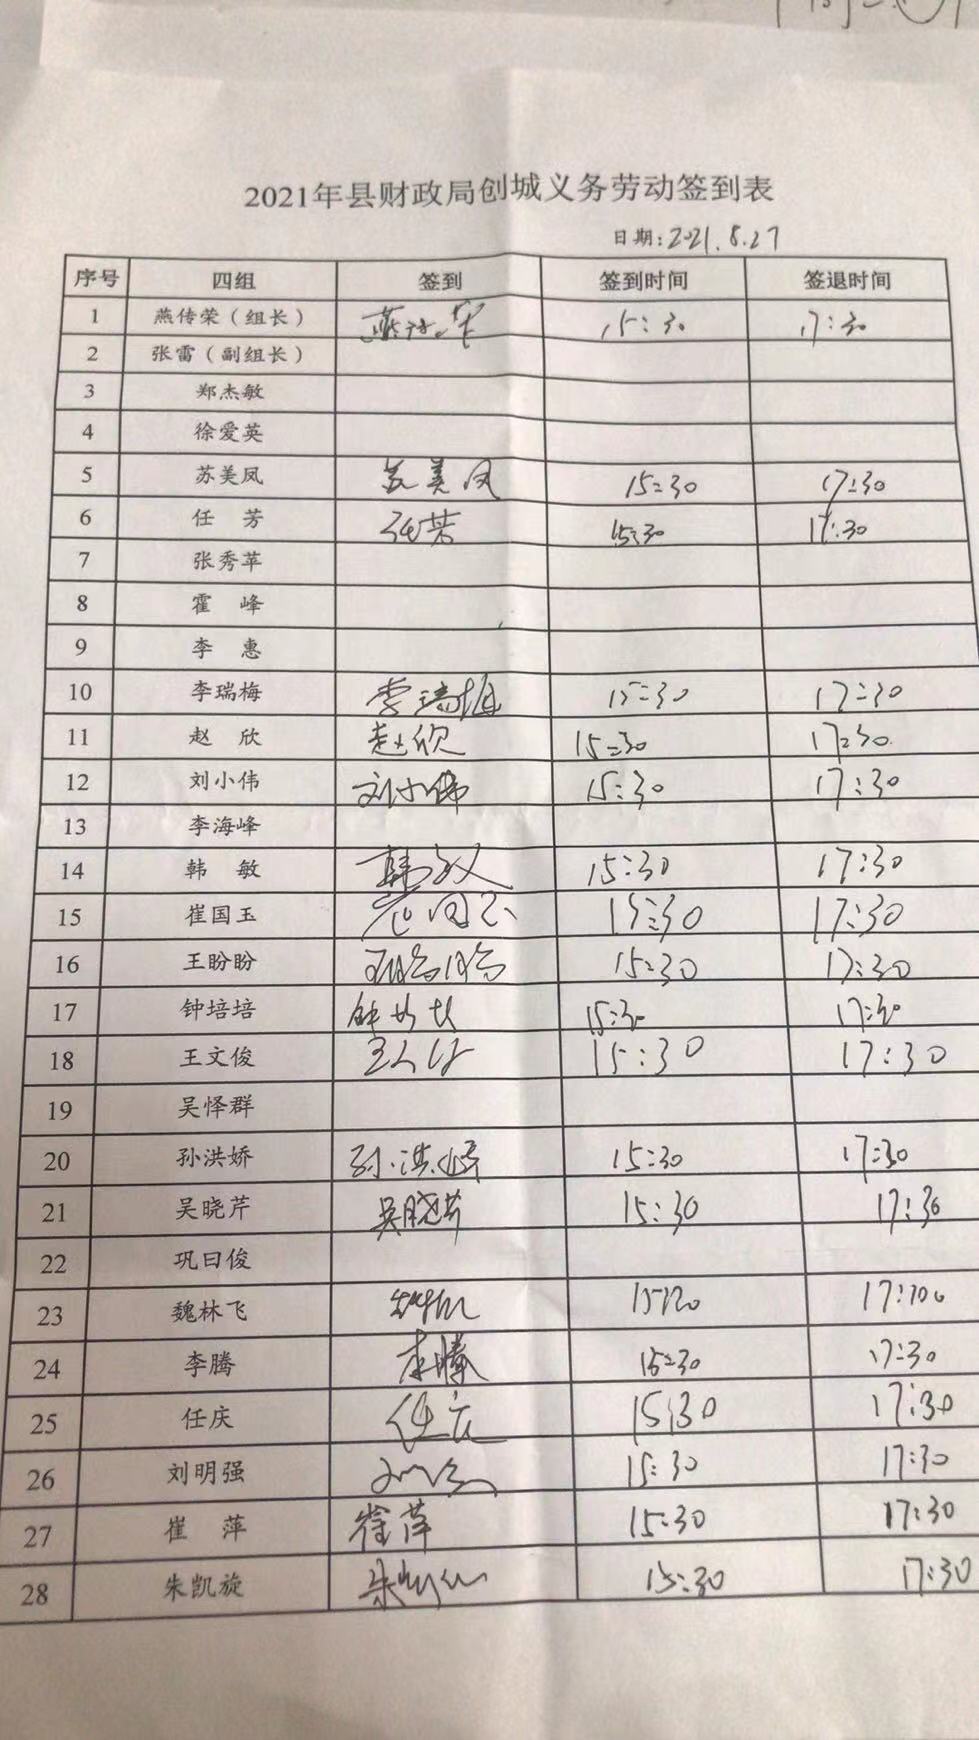 2021年县财政局创城义务劳动签到表
日期:2021.8.27
序号 四组 签到 签到时间 签退时间
1 燕传荣（组长） 15:30 17:30
2 张雷（副组长）
3 郑杰敏
4 徐爱英
5 苏美凤 苏美凤 15:30 17:30
6 任 芳 任芳 15:30 17:30
7 张秀苹
8 霍 峰
9 李 惠
10 李瑞梅 李瑞梅 15:30 17:30
11 赵 欣 赵欣 15:30 17:30
12 刘小伟 刘小伟 15:30 17:30
13 李海峰
14 韩 敏 韩敏 15:30 17:30
15 崔国玉 崔国玉 15:30 17:30
16 王盼盼 王盼盼 15:30 17:30
17 钟培培 15:30 17:30
18 王文俊 15:30 17:30
19 吴怿群
20 孙洪娇 孙洪娇 15:30 17:30
21 吴晓芹 吴晓芹 15:30 17:30
22 巩曰俊
23 魏林飞
24 李腾 李腾 15:30 17:30
25 任庆 任庆 15:30 17:30
26 刘明强 15:30 17:30
27 崔 萍 崔萍 15:30 17:30
28 朱凯旋 15:30 17:30